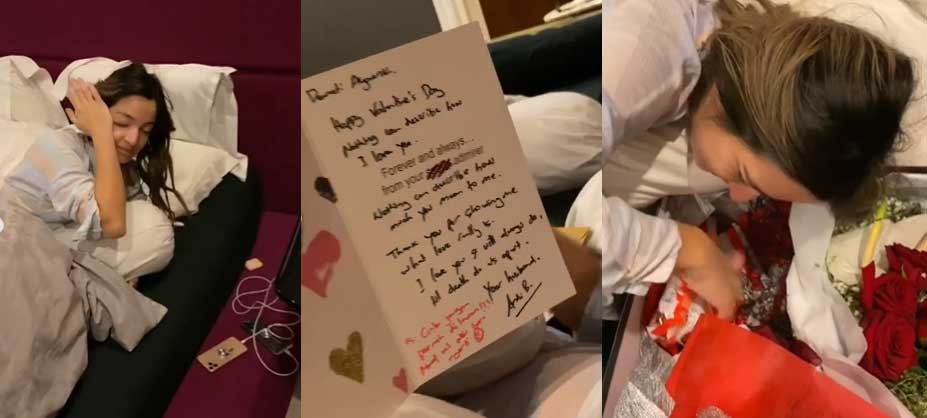 Happy Valentine's Day
Nothing can describe how
I love you.
Forever and always...
from your admirer
Nothing can describe how
much you mean to me.
Thank you for showing me
what love really is.
I love you & will always do,
til death do us apart.
Your husband,